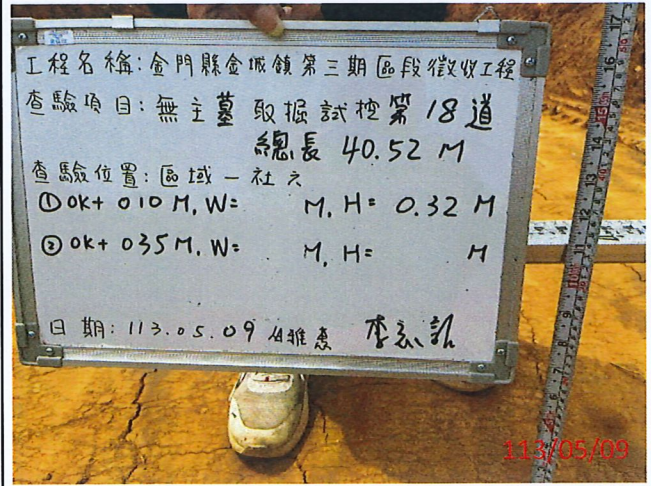 工程名稱:金門縣金城鎮第三期區段徵收工程
查驗項目:無主墓取掘試挖第18道
總長 40.52 M
查驗位置:區域一社六
①0K+010M, W= M, H= 0.32 M
②0K+035M, W= M, H= M
日期:113.05.09
113/05/09